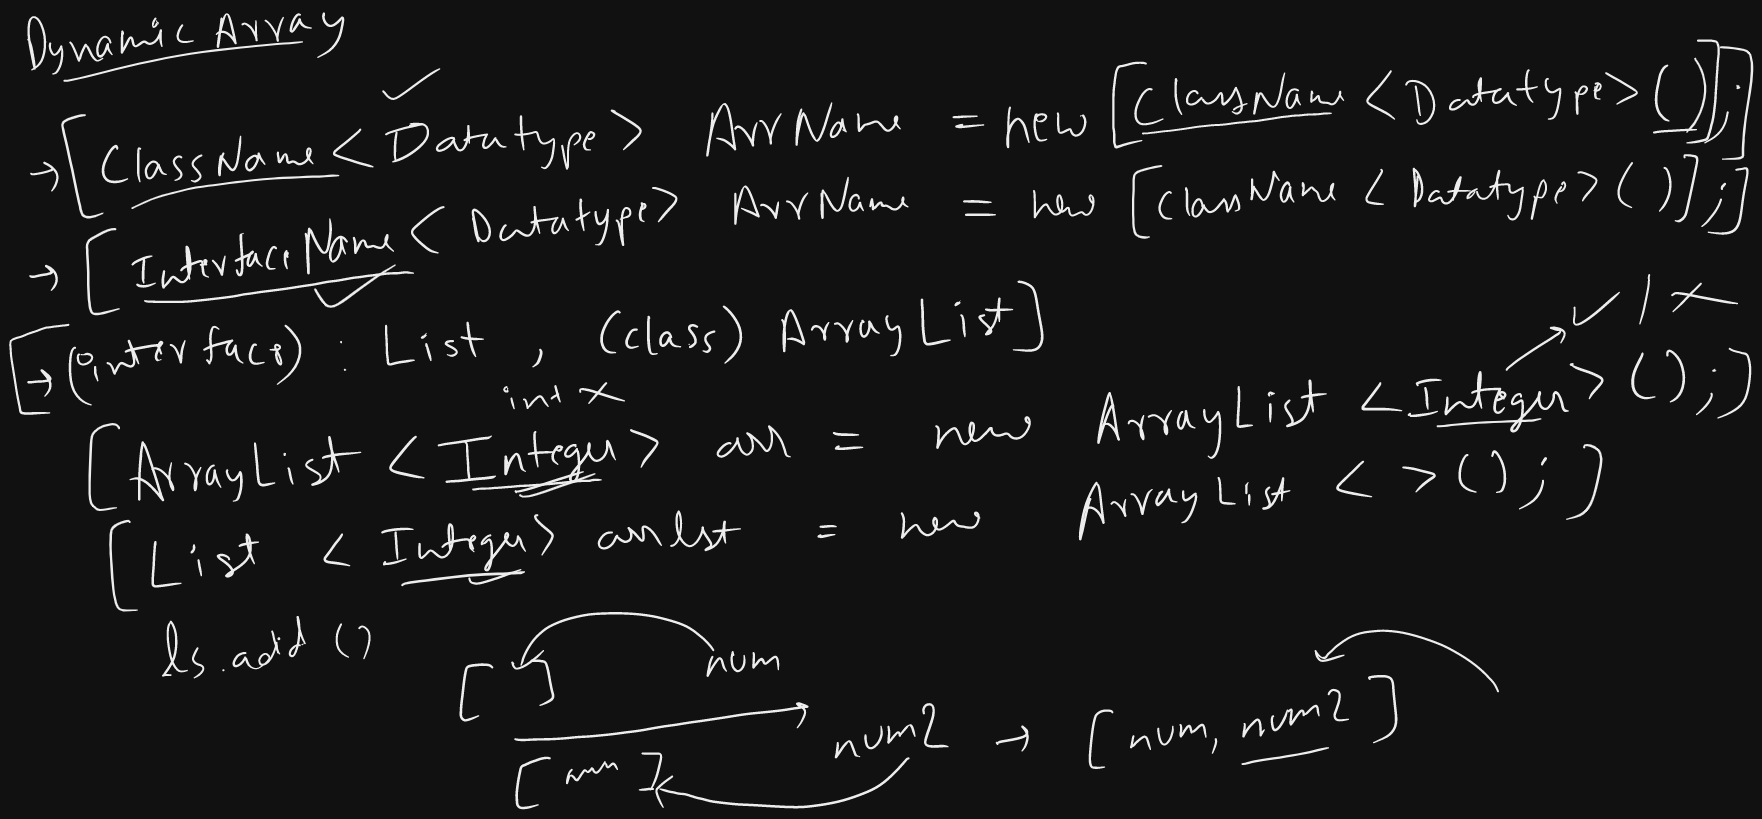 Dynamic Array
→ [ClassName <Datatype> ArrName = new [ClassName <Datatype> ()];]
→ [InterfaceName <Datatype> ArrName = new [ClassName <Datatype> ()];]
[→ (interface) : List , (class) ArrayList]
int x
✓ / x
[ArrayList <Integer> arr = new ArrayList <Integer> ();]
[List <Integer> arrlst = new ArrayList < > (); ]
ls.add ()
[ ] num
[num] num2 → [num, num2]